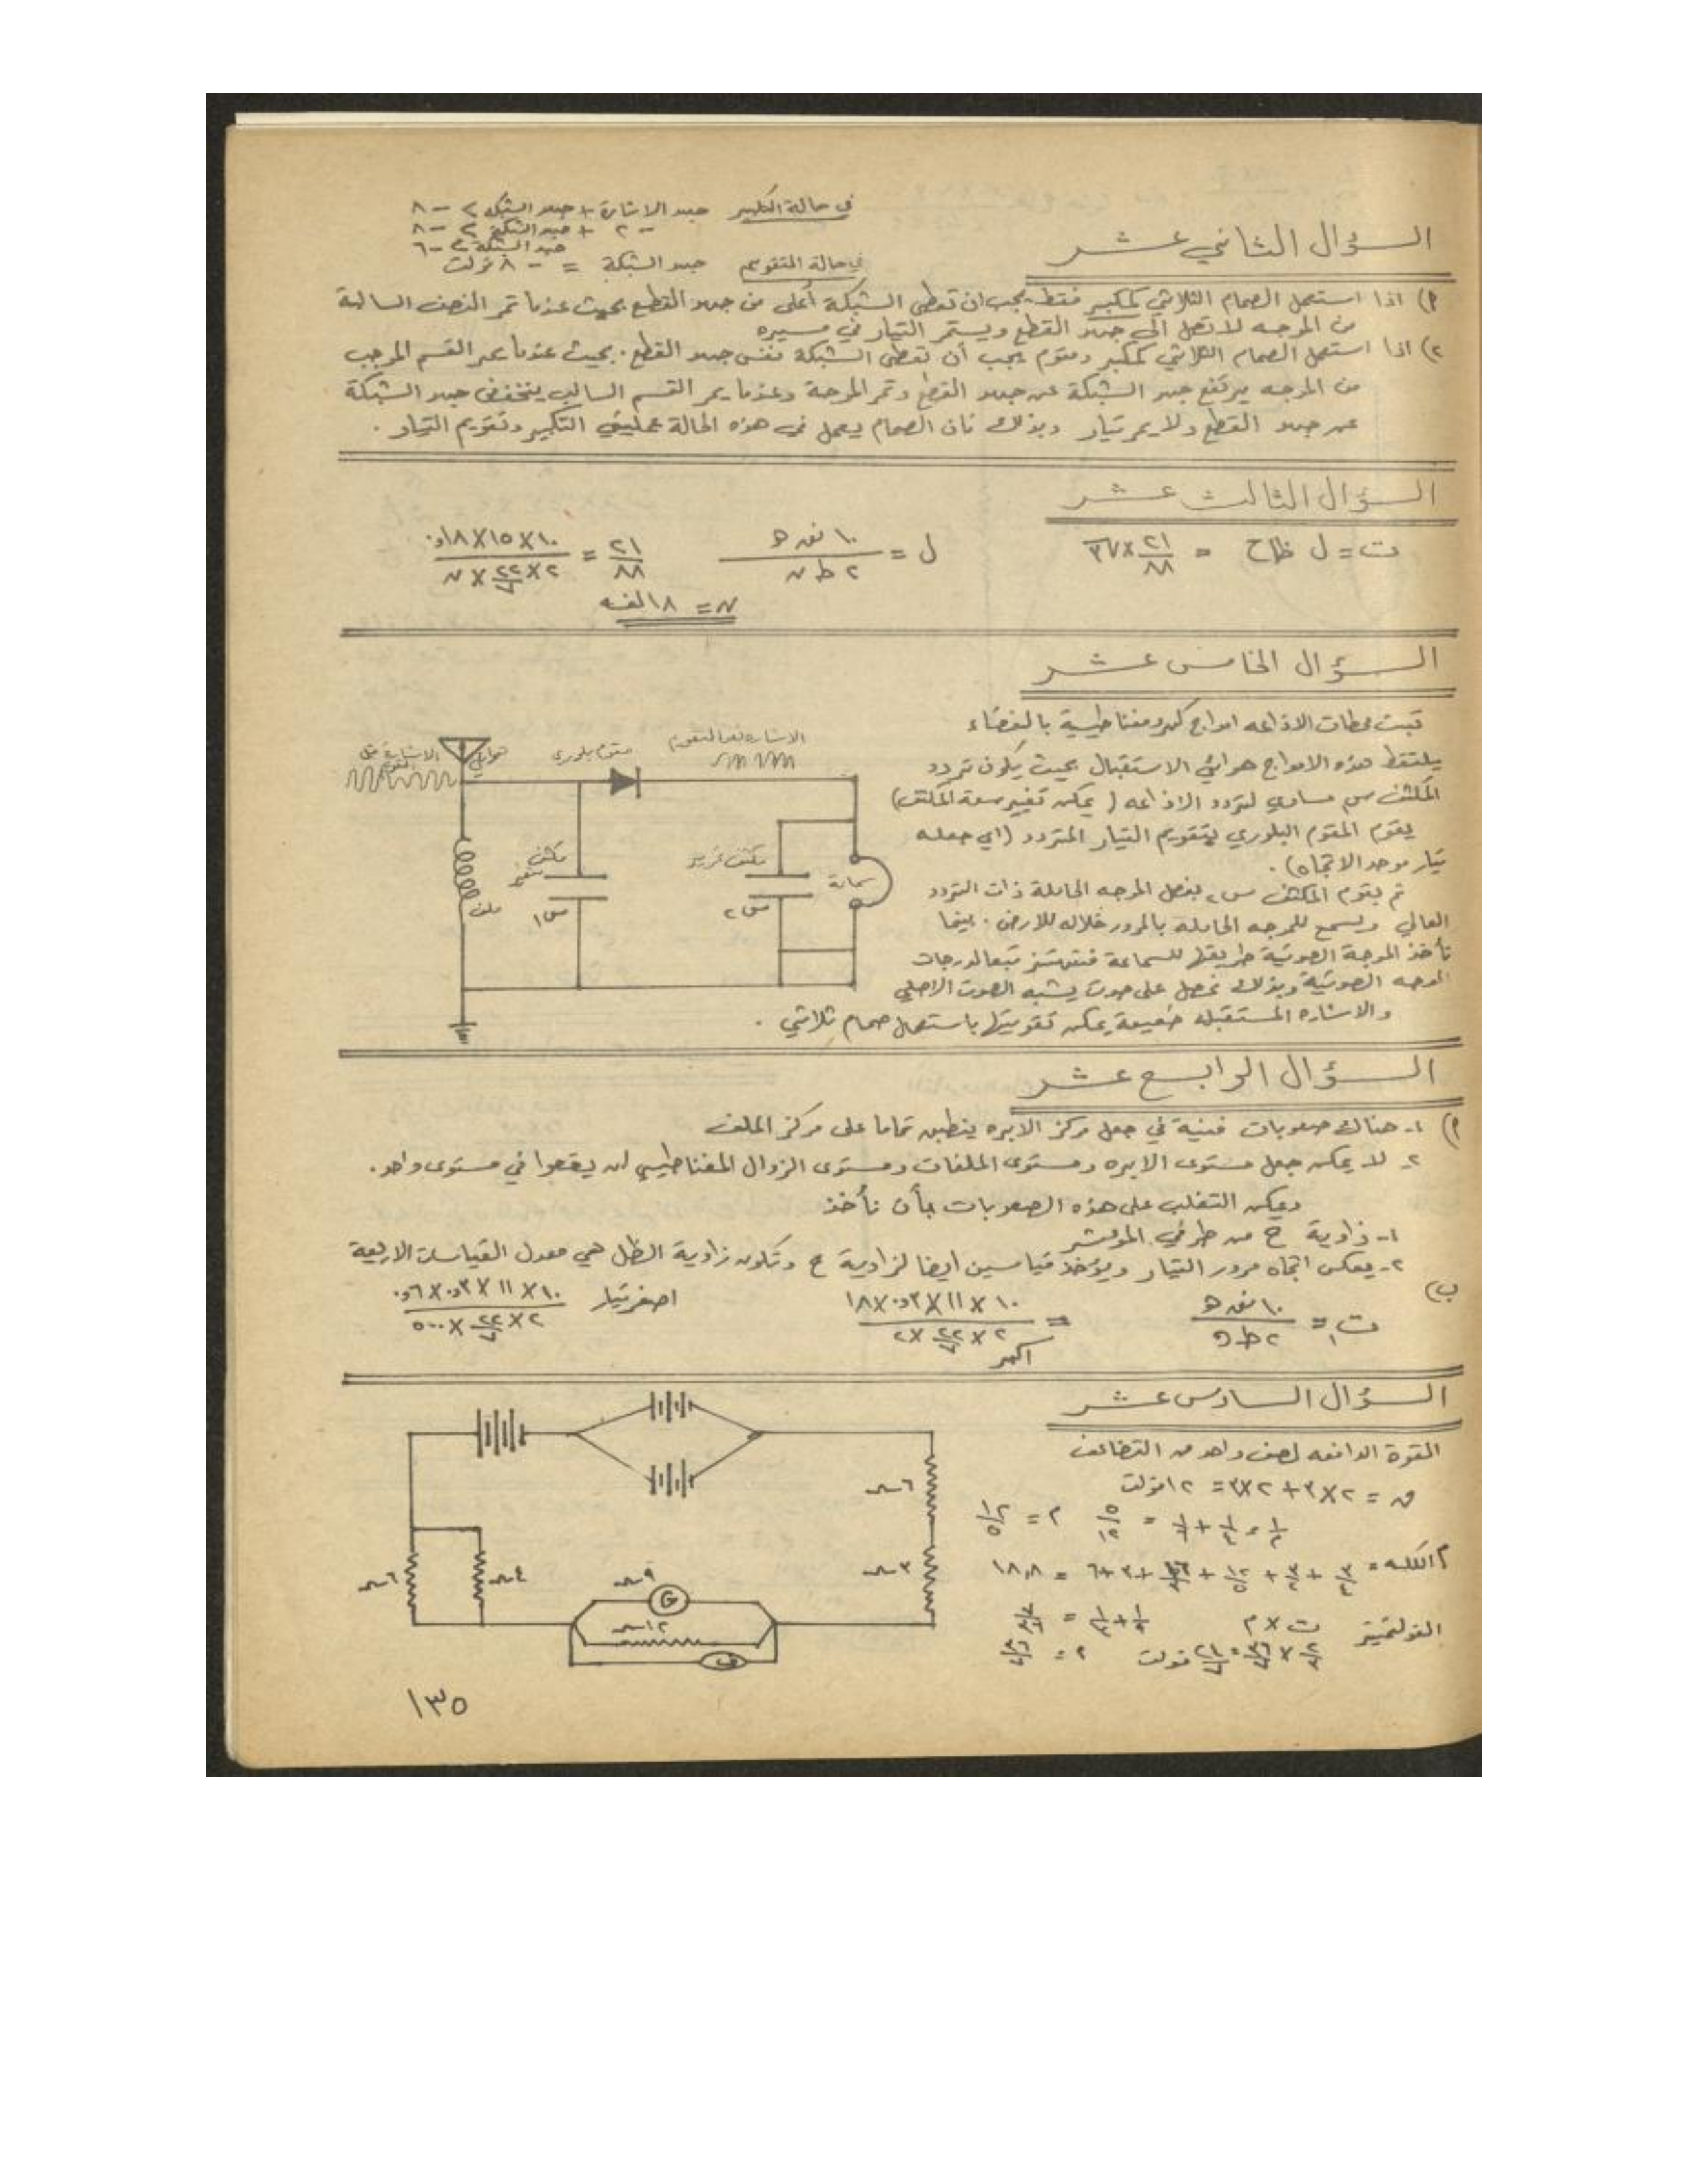 في حالة التكبير جهد الاشارة + جهد الشبكة > -٨
-٢ + جهد الشبكة > -٨
جهد الشبكة > -٦
في حالة التقويم جهد الشبكة = -٨ فولت
السؤال الثاني عشر
١) اذا استعمل الصمام الثلاثي كمكبر فقط يجب ان تعطى الشبكة أعلى من جهد القطع بحيث عندما تمر النصف السالبة
من الموجه لا تصل الى جهد القطع ويستمر التيار في مسيره
٢) اذا استعمل الصمام الثلاثي كمكبر ومقوم يجب أن تعطى الشبكة نفس جهد القطع. بحيث عندما يمر القسم الموجب
من الموجه يرتفع جهد الشبكة عن جهد القطع وتمر الموجة وعندما يمر القسم السالب ينخفض جهد الشبكة
عن جهد القطع ولا يمر تيار وبذلك فان الصمام يعمل في هذه الحالة عمليتي التكبير وتقويم التيار.
السؤال الثالث عشر
ت = ل ظاح = ٢١/٨٨ × ٣٧
ل = ١٠ نق ه / ٢ ط ن
٢١/٨٨ = ١٠×١٥×٠١٨و / ٢×٢٢/٧×ن
ن = ١٨ لفه
السؤال الخامس عشر
تبث محطات الاذاعه امواج كهرومغناطيسية بالفضاء
يلتقط هذه الامواج هوائي الاستقبال بحيث يكون تردد
المكثف س١ مساوي لتردد الاذاعه (يمكن تغيير سعة المكثف)
يقوم المقوم البلوري بتقويم التيار المتردد (اي جعله
تيار موحد الاتجاه).
ثم يقوم المكثف س٢ بفصل الموجه الحاملة ذات التردد
العالي ويسمح للموجه الحامله بالمرور خلاله للارض. بينما
تأخذ الموجة الصوتية طريقها للسماعة فتهتز تبعا لدرجات
الموجه الصوتية وبذلك نحصل على صوت يشبه الصوت الاصلي
والاشاره المستقبله ضعيفة يمكن تقويتها باستعمال صمام ثلاثي.
الاشارة قبل التقويم
هوائي
مقوم بلوري
الاشارة بعد التقويم
ملف
مكثف متغير
س١
س٢
سماعة
السؤال الرابع عشر
١) ١- هناك صعوبات فنية في جعل مركز الابره ينطبق تماما على مركز الملف
٢- لا يمكن جعل مستوى الابره ومستوى الملفات ومستوى الزوال المغناطيسي ان يقعوا في مستوى واحد.
ويمكن التغلب على هذه الصعوبات بأن نأخذ
١- زاوية ح من طرفي المؤشر
٢- يعكس اتجاه مرور التيار ويؤخذ قياسين ايضا لزاوية ح وتكون زاوية الظل هي معدل القياسات الاربعة
ب) ت١ = ١٠ نق ه / ٢ ط ن = ١٠×١١×٠٣و×١٨ / ٢×٢٢/٧×٢
اكبر
اصغر تيار ١٠×١١×٠٣و×٠٦و / ٢×٢٢/٧×٥٠٠
السؤال السادس عشر
القوة الدافعه لصف واحد من التضاعف
ق = ٢×٣ + ٢×٣ = ١٢ فولت
م = ١٢/٥
م الكليه = ... + ٣ + ٦ = ١٨,٨
الفولتميتر ت × م
٦ م
٣ م
٩ م
G
١٢ م
ف
٤ م
٦ م
١٣٥